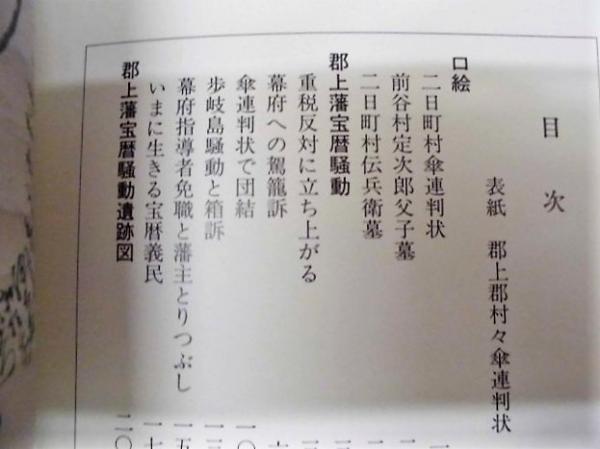 目次
表紙 郡上郡村々傘連判状
口絵
二日町村傘連判状 一
前谷村定次郎父子墓 二
二日町村伝兵衛墓 二
郡上藩宝暦騒動
重税反対に立ち上がる
幕府への駕籠訴
傘連判状で団結 一〇
歩岐島騒動と箱訴
幕府指導者免職と藩主とりつぶし 一五
いまに生きる宝暦義民 一七
郡上藩宝暦騒動遺跡図 二〇